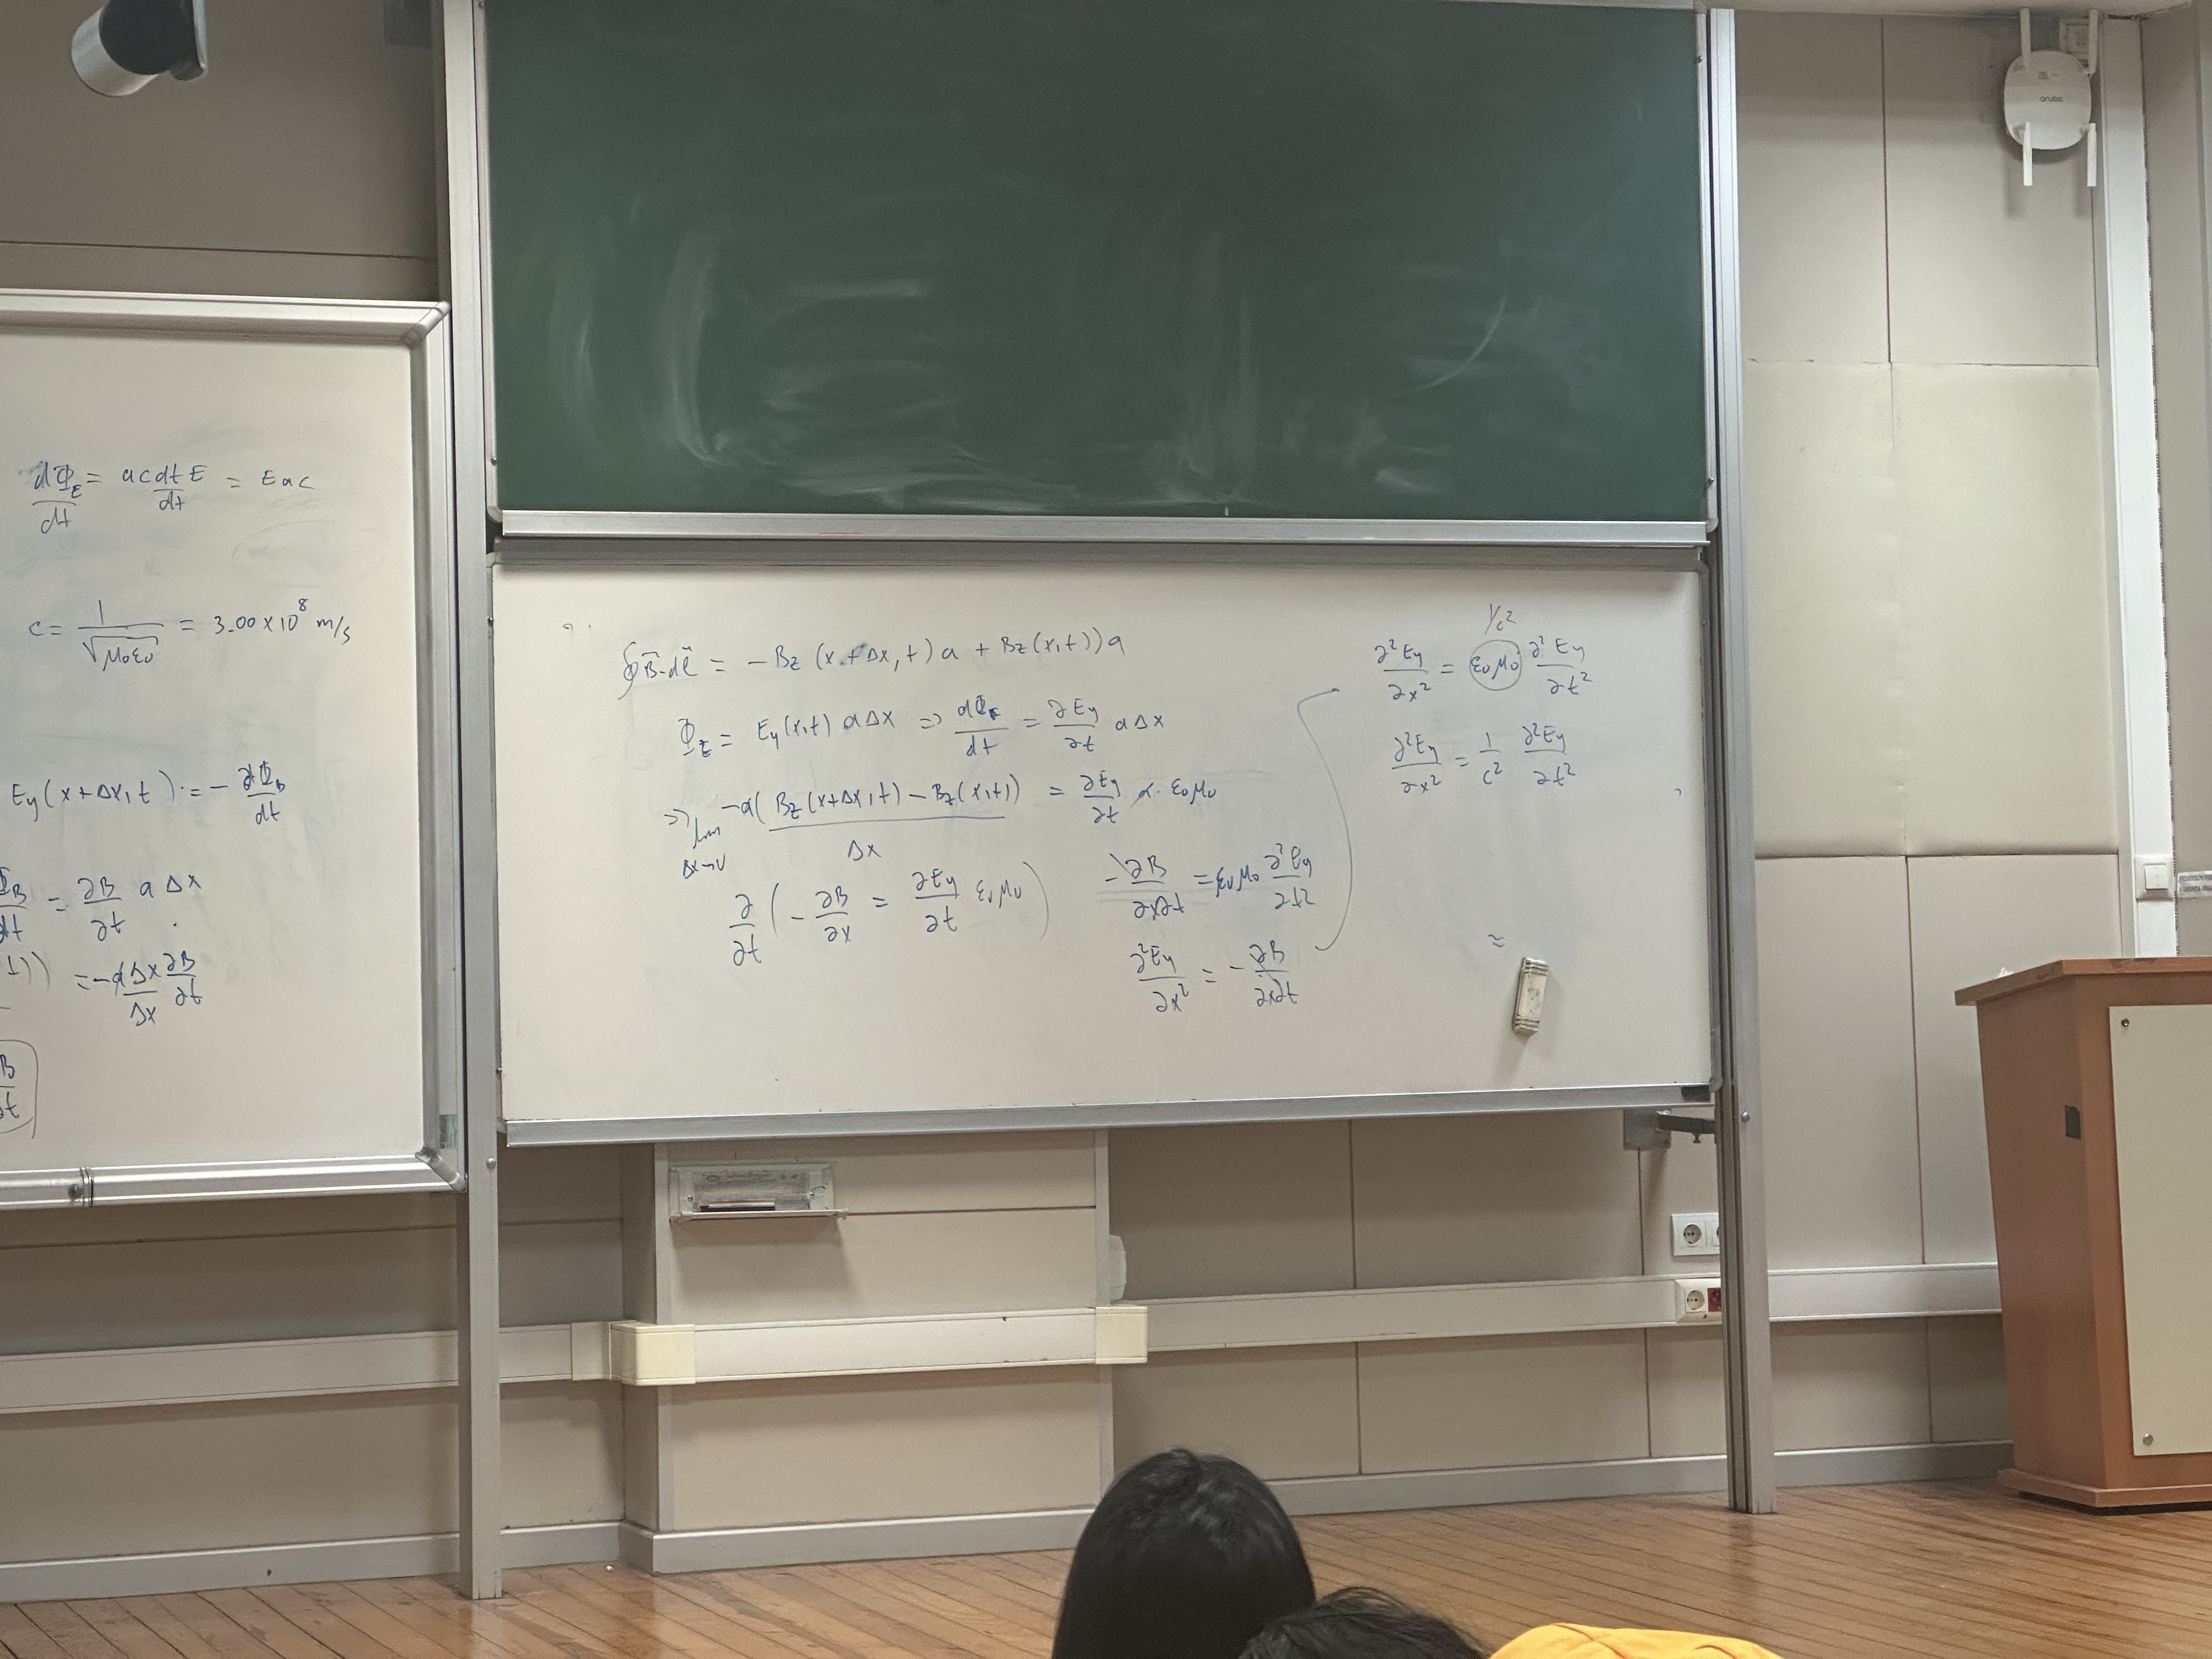 dΦ_E/dt = acdtE/dt = Eac
c = 1/√μ₀ε₀ = 3.00×10⁸ m/s
Ey(x+Δx,t) = - dΦ_B/dt
= ∂B/∂t aΔx
= -aΔx/Δx ∂B/∂t
∮B̄·dl̄ = -Bz(x+Δx,t)a + Bz(x,t))a
Φ_E = Ey(x,t) aΔx => dΦ_E/dt = ∂Ey/∂t aΔx
=> lim Δx→0 -a(Bz(x+Δx,t) - Bz(x,t))/Δx = ∂Ey/∂t a·ε₀μ₀
∂/∂t (-∂B/∂x = ∂Ey/∂t ε₀μ₀)
-∂B/∂x∂t = ε₀μ₀ ∂²Ey/∂t²
∂²Ey/∂x² = -∂B/∂x∂t
1/c²
∂²Ey/∂x² = ε₀μ₀ ∂²Ey/∂t²
∂²Ey/∂x² = 1/c² ∂²Ey/∂t²
=
aruba